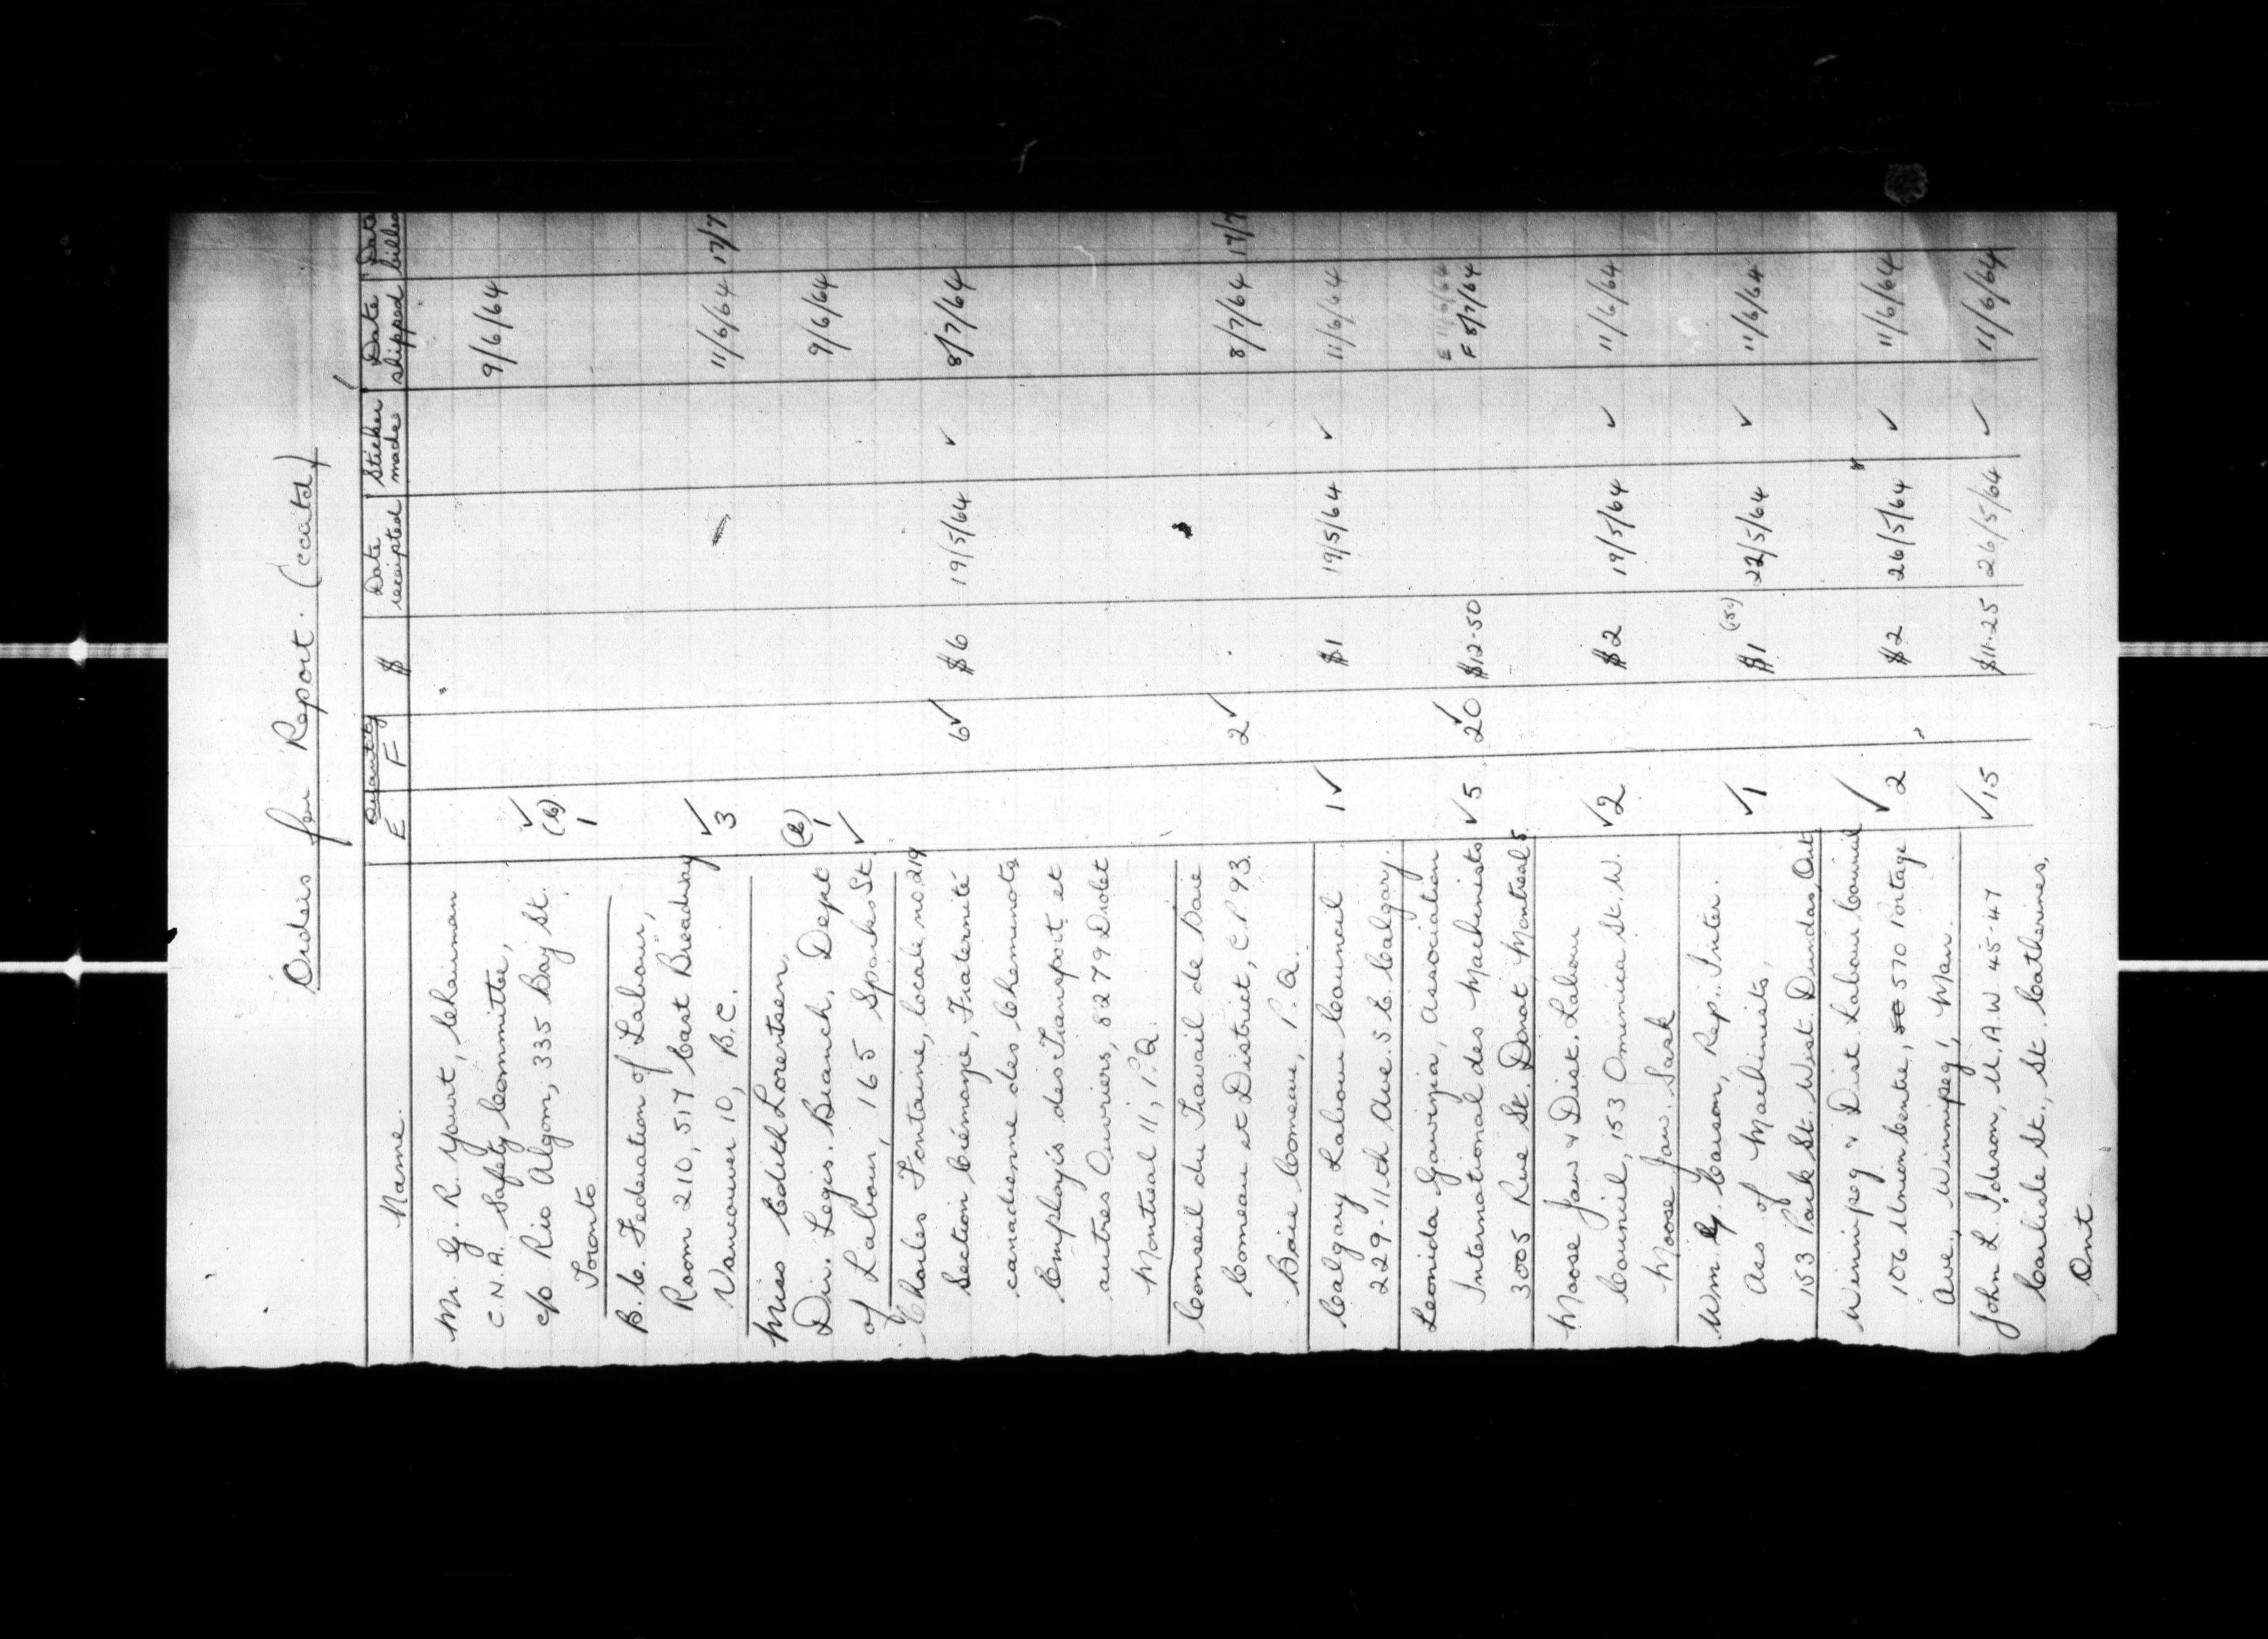 Orders for Report. (contd)
Name. Quantity E F $ Date receipted Sticker made Date shipped Date billed
Mr. G. R. Yourt, Chairman
C.N.A. Safety Committee, ✓ (6) 9/6/64
c/o Rio Algom, 335 Bay St. 1
Toronto
B.C. Federation of Labour,
Room 210, 517 East Broadway ✓ 3 11/6/64 17/7
Vancouver 10, B.C.
Miss Edith Lorentsen,
Dir. Legis. Branch, Dept 1 9/6/64
of Labour, 165 Sparks St ✓
Charles Fontaine, locale no. 219
Section Crémazie, Fraternité 6✓ $6 19/5/64 ✓ 8/7/64
canadienne des Cheminots
Employés des Transport et
autres Ouvriers, 8279 Drolet
Montreal 11, P.Q.
Conseil du Travail de Baie
Comeau et District, C.P. 93. 2✓ 8/7/64 17/7
Baie Comeau, P.Q.
Calgary Labour Council 1✓ $1 19/5/64 ✓ 11/6/64
229-11th Ave. S.E. Calgary.
Leonida Association E 11/6/64
International des Machinists ✓5 ✓20 $12.50 F 8/7/64
3005 Rue St. Donat, Montreal 5.
Moose Jaw & Dist. Labour
Council, 153 Ominica St. W. ✓2 $2 19/5/64 ✓ 11/6/64
Moose Jaw. Sask
Wm. G. Carson, Rep. Inter.
Ass of Machinists, ✓1 $1 (50) 22/5/64 ✓ 11/6/64
153 Park St. West. Dundas, Ont
Winnipeg & Dist Labour Council
106 Union Centre, 50 570 Portage ✓2 $2 26/5/64 ✓ 11/6/64
Ave., Winnipeg 1, Man.
John L. Ideson, U.A.W 45-47 ✓15 $11.25 26/5/64 ✓ 11/6/64
Carlisle St., St. Catherines,
Ont.